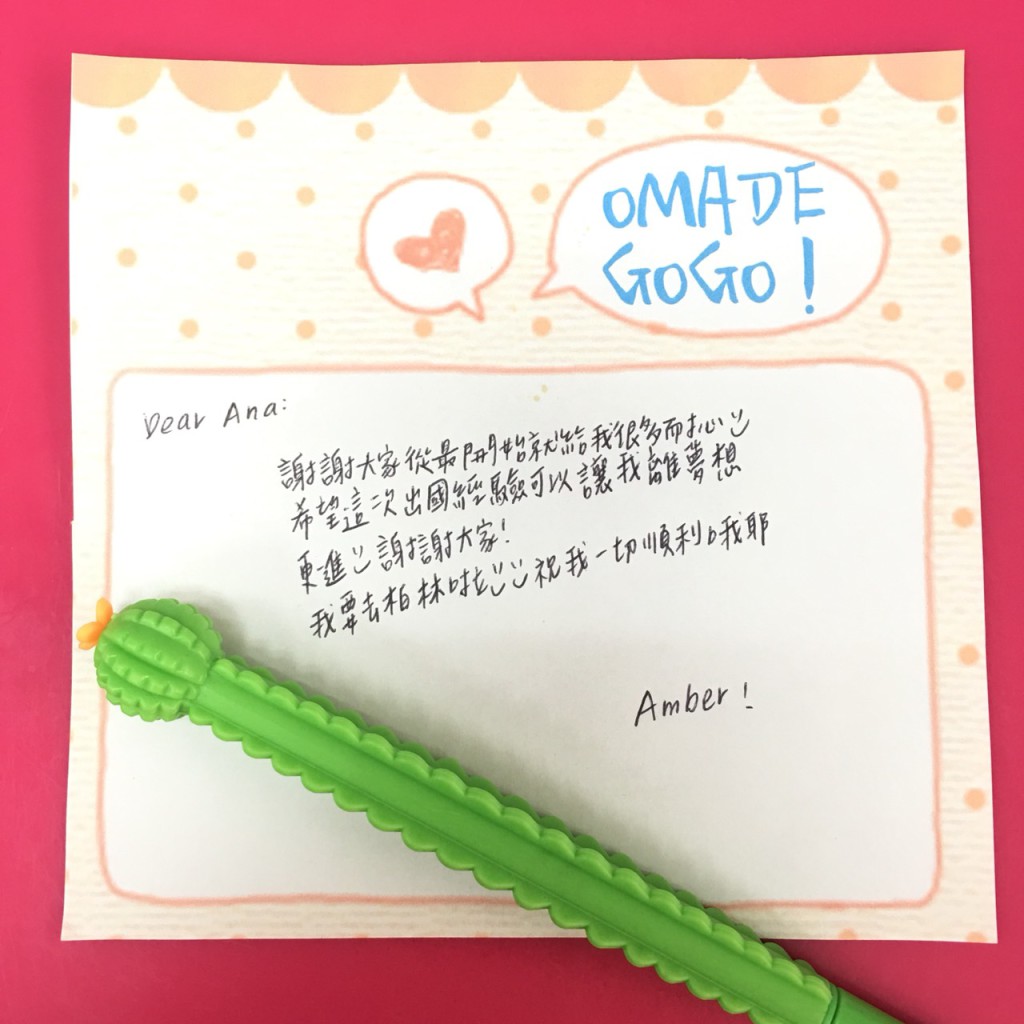 OMADE
GOGO!
Dear Ana:
謝謝大家從最開始就給我很多耐心
希望這次出國經驗可以讓我離夢想
更進 謝謝大家!
我要去柏林啦 祝我一切順利 我耶
Amber!